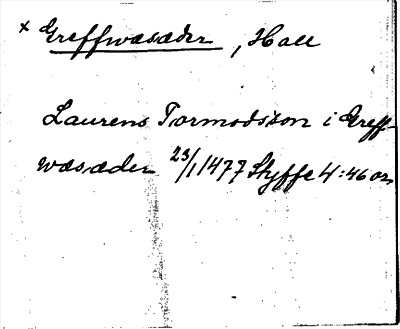 × Greffwæsæder, Hall
Laurens Tormodsson i Greff-
wæsæder 23/1 1477 Styffe 4:46 or.